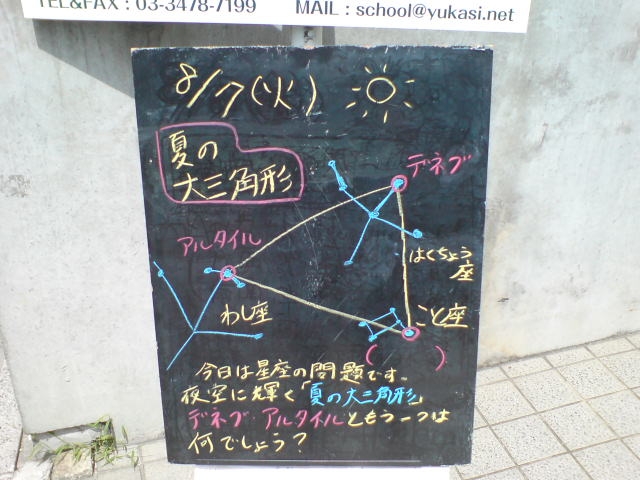 TEL&FAX : 03-3478-7199 MAIL : school@yukasi.net
8/7(火)
夏の
大三角形
デネブ
アルタイル
はくちょう
座
わし座
こと座
( )
今日は星座の問題です。
夜空に輝く「夏の大三角形」
デネブ アルタイルともう一つは
何でしょう?